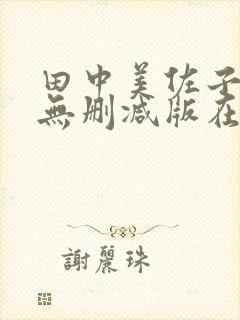 田中美佐子
無删减版在
謝麗珠